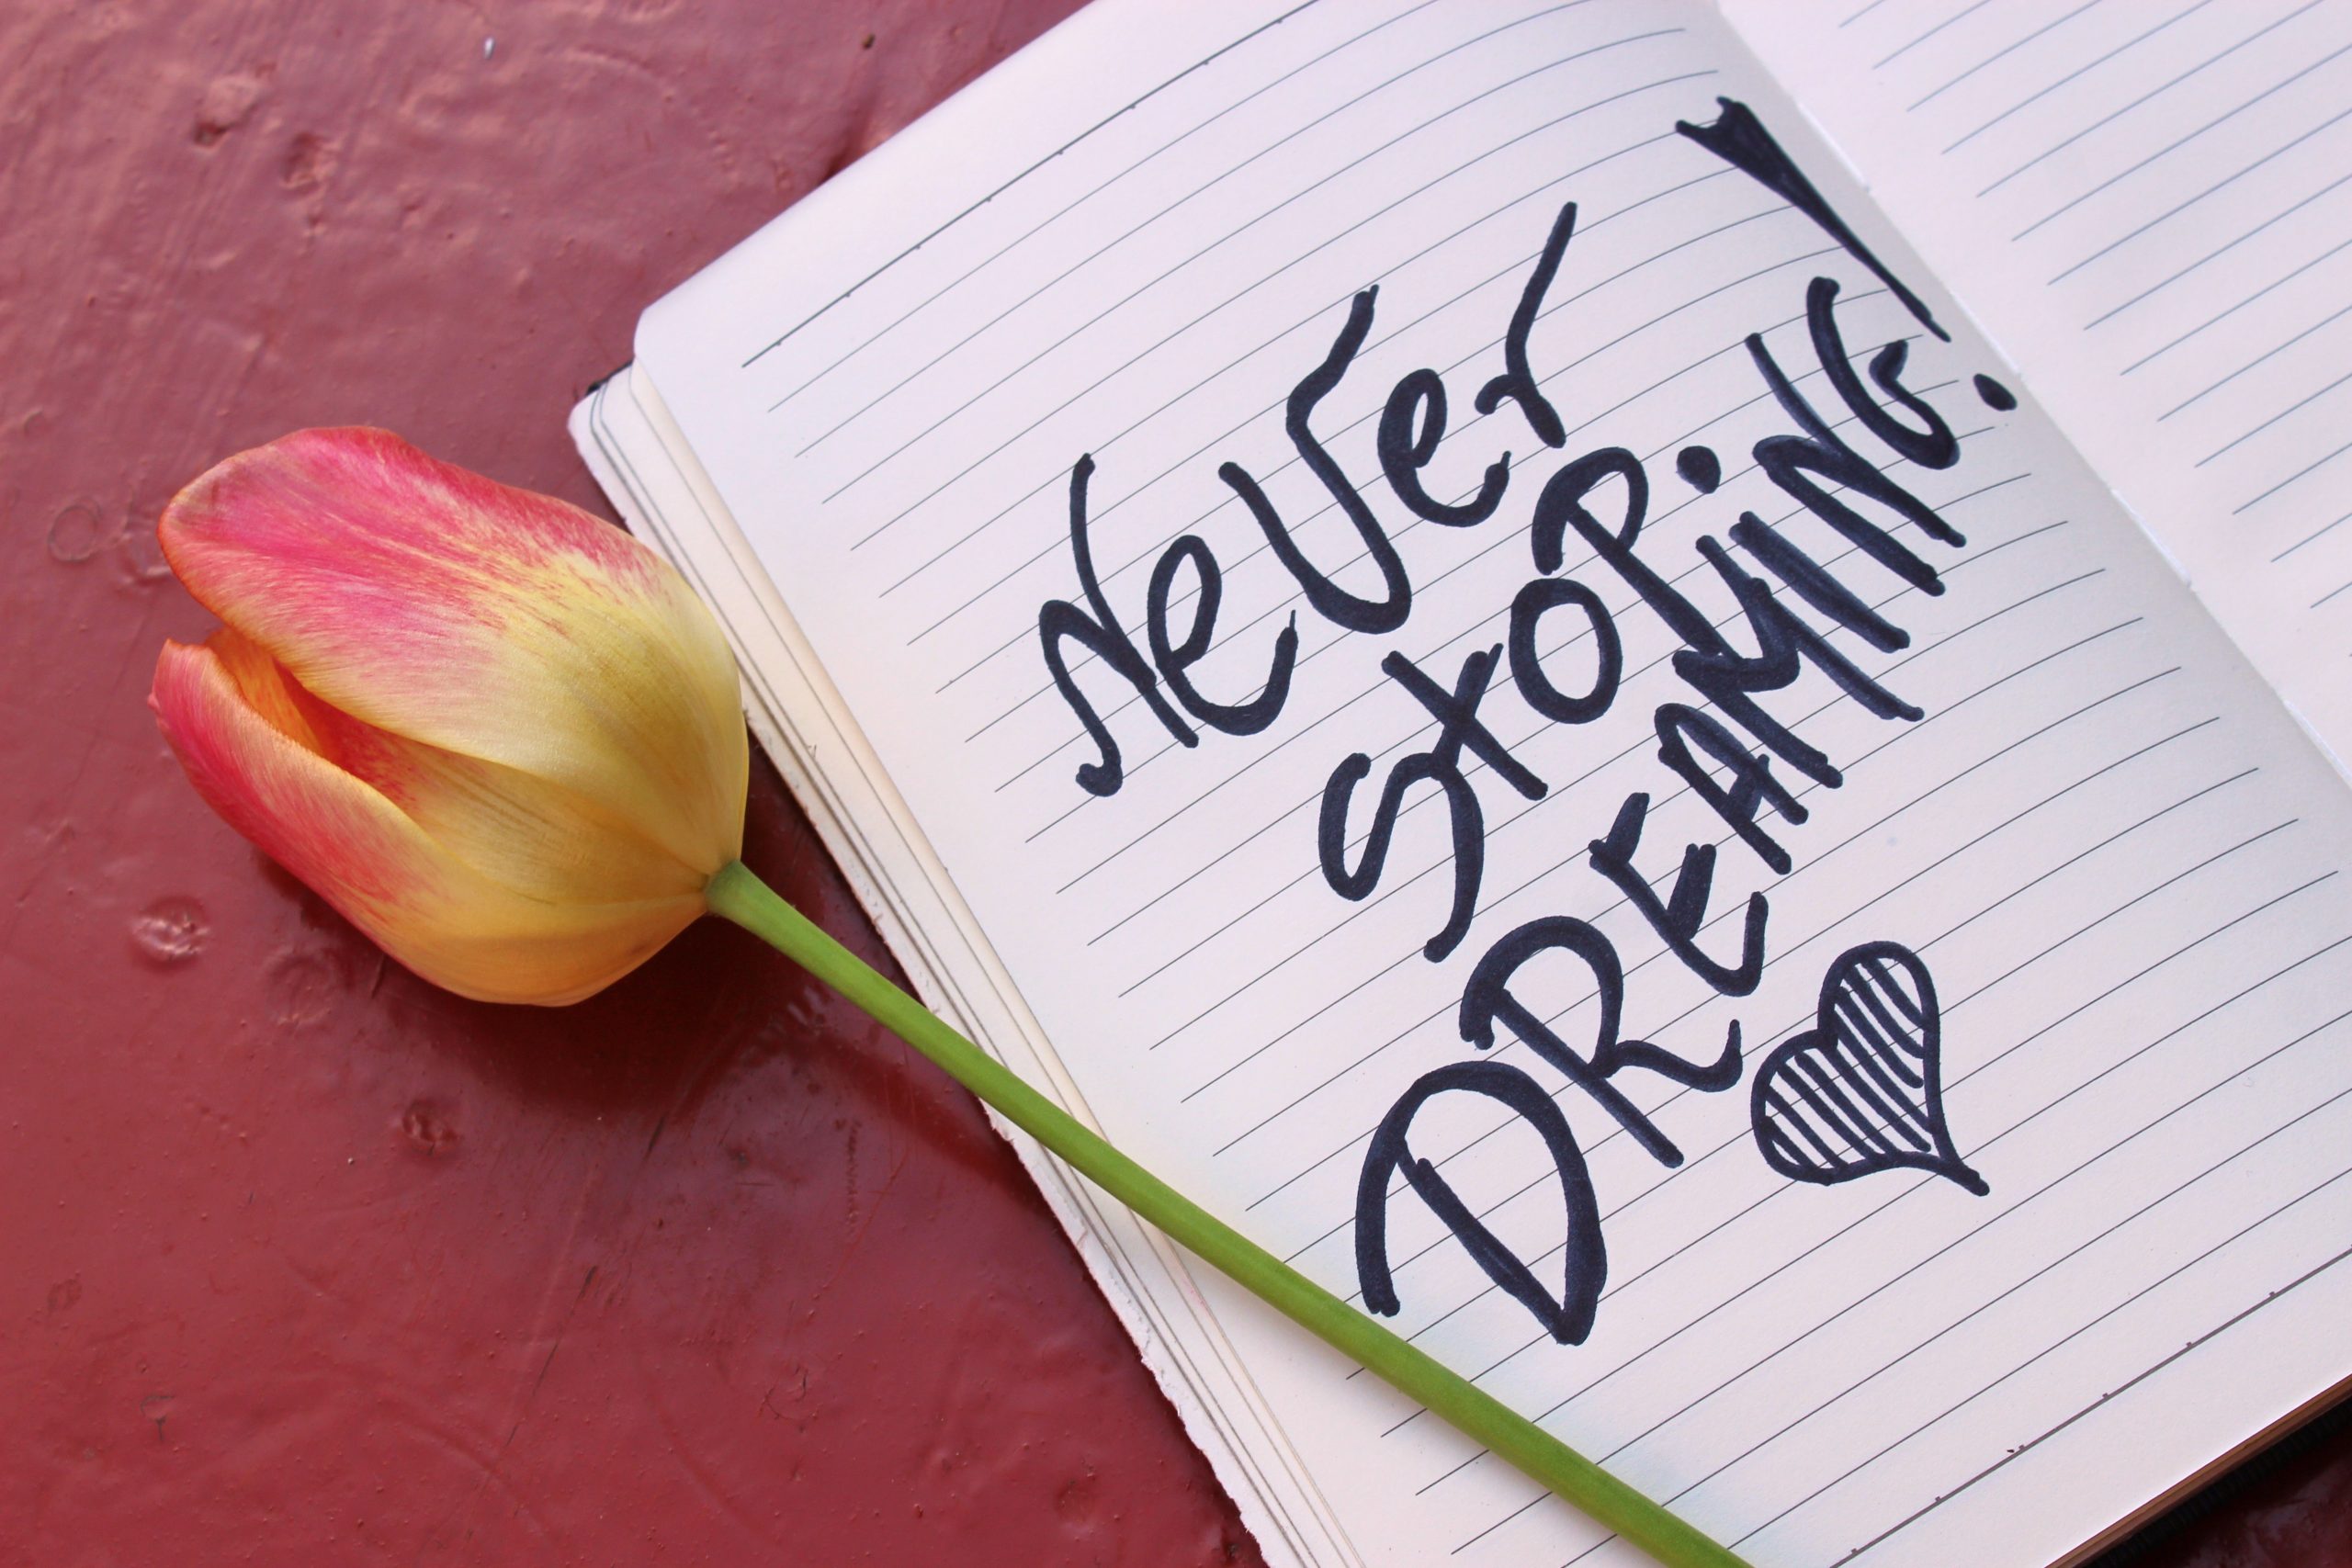 Never
StoP
DREAMiNG!